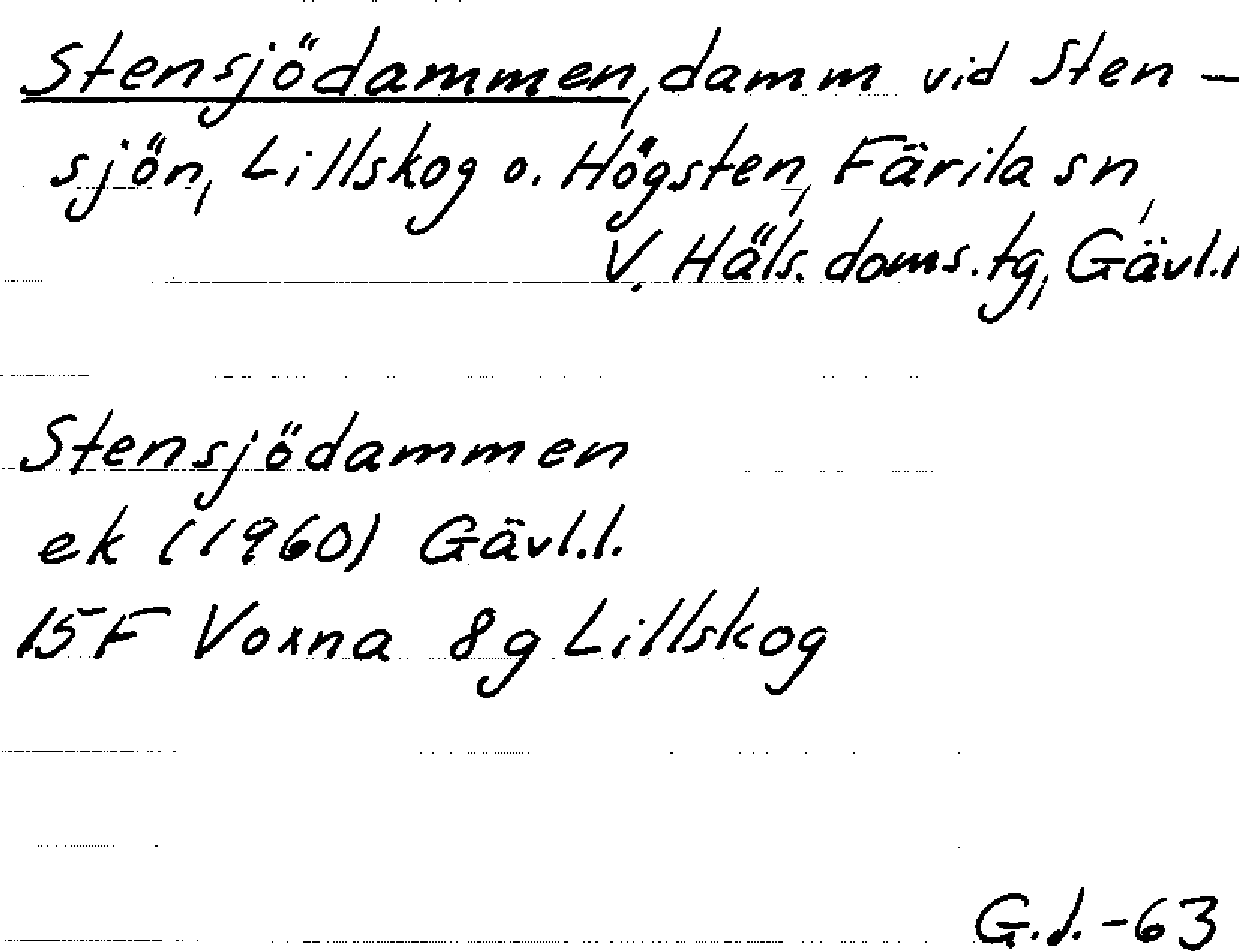 Stensjödammen, damm vid Sten-
sjön, Lillskog o. Högsten, Färila sn,
V. Häls. doms. tg, Gävl.l
Stensjödammen
ek (1960) Gävl.l.
15F Voxna 8g Lillskog
G.d.-63